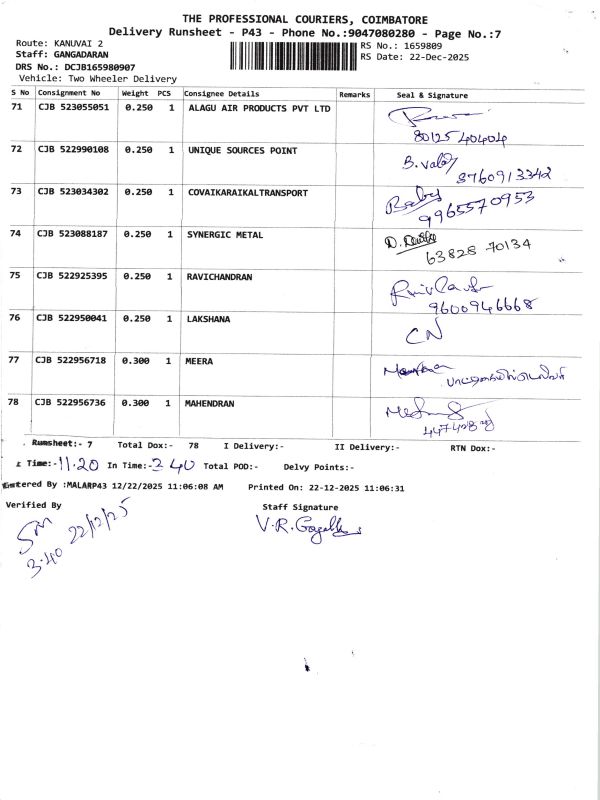 THE PROFESSIONAL COURIERS, COIMBATORE
Delivery Runsheet - P43 - Phone No.:9047080280 - Page No.:7
Route: KANUVAI 2
Staff: GANGADARAN
DRS No.: DCJB165980907
Vehicle: Two Wheeler Delivery
RS No.: 1659809
RS Date: 22-Dec-2025
S No Consignment No Weight PCS Consignee Details Remarks Seal & Signature
71 CJB 523055051 0.250 1 ALAGU AIR PRODUCTS PVT LTD
80125 40404
72 CJB 522990108 0.250 1 UNIQUE SOURCES POINT
3760913342
73 CJB 523034302 0.250 1 COVAIKARAIKALTRANSPORT Baby
9965570953
74 CJB 523088187 0.250 1 SYNERGIC METAL
63828 70134
75 CJB 522925395 0.250 1 RAVICHANDRAN
9600946668
76 CJB 522950041 0.250 1 LAKSHANA CN
77 CJB 522956718 0.300 1 MEERA
78 CJB 522956736 0.300 1 MAHENDRAN
Rumsheet:- 7 Total Dox:- 78 I Delivery:- II Delivery:- RTN Dox:-
Time:-11.20 In Time:-3 40 Total POD:- Delvy Points:-
Entered By :MALARP43 12/22/2025 11:06:08 AM Printed On: 22-12-2025 11:06:31
Verified By Staff Signature
SM 22/12/25
3.40
V.R.